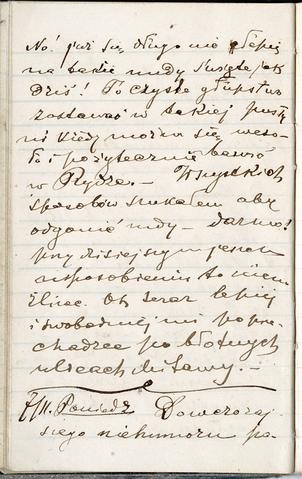 No! już się długo nie
na takie nudy święte jak
Dziś! To czyste głupstwo
zostawać w takiej
kiedy można się weso-
ło i pożytecznie bawić
w Rydze. — Wszystkich
sposobów szukałem aby
odgonić nudy — darmo!
przy dzisiejszym
usposobieniu to
Ot teraz lepiej
i swobodniej mi po prze-
chadzce po błotnych
ulicach Mitawy. —
7/II. Poniedz Do wczoraj-
szego niehumoru po-